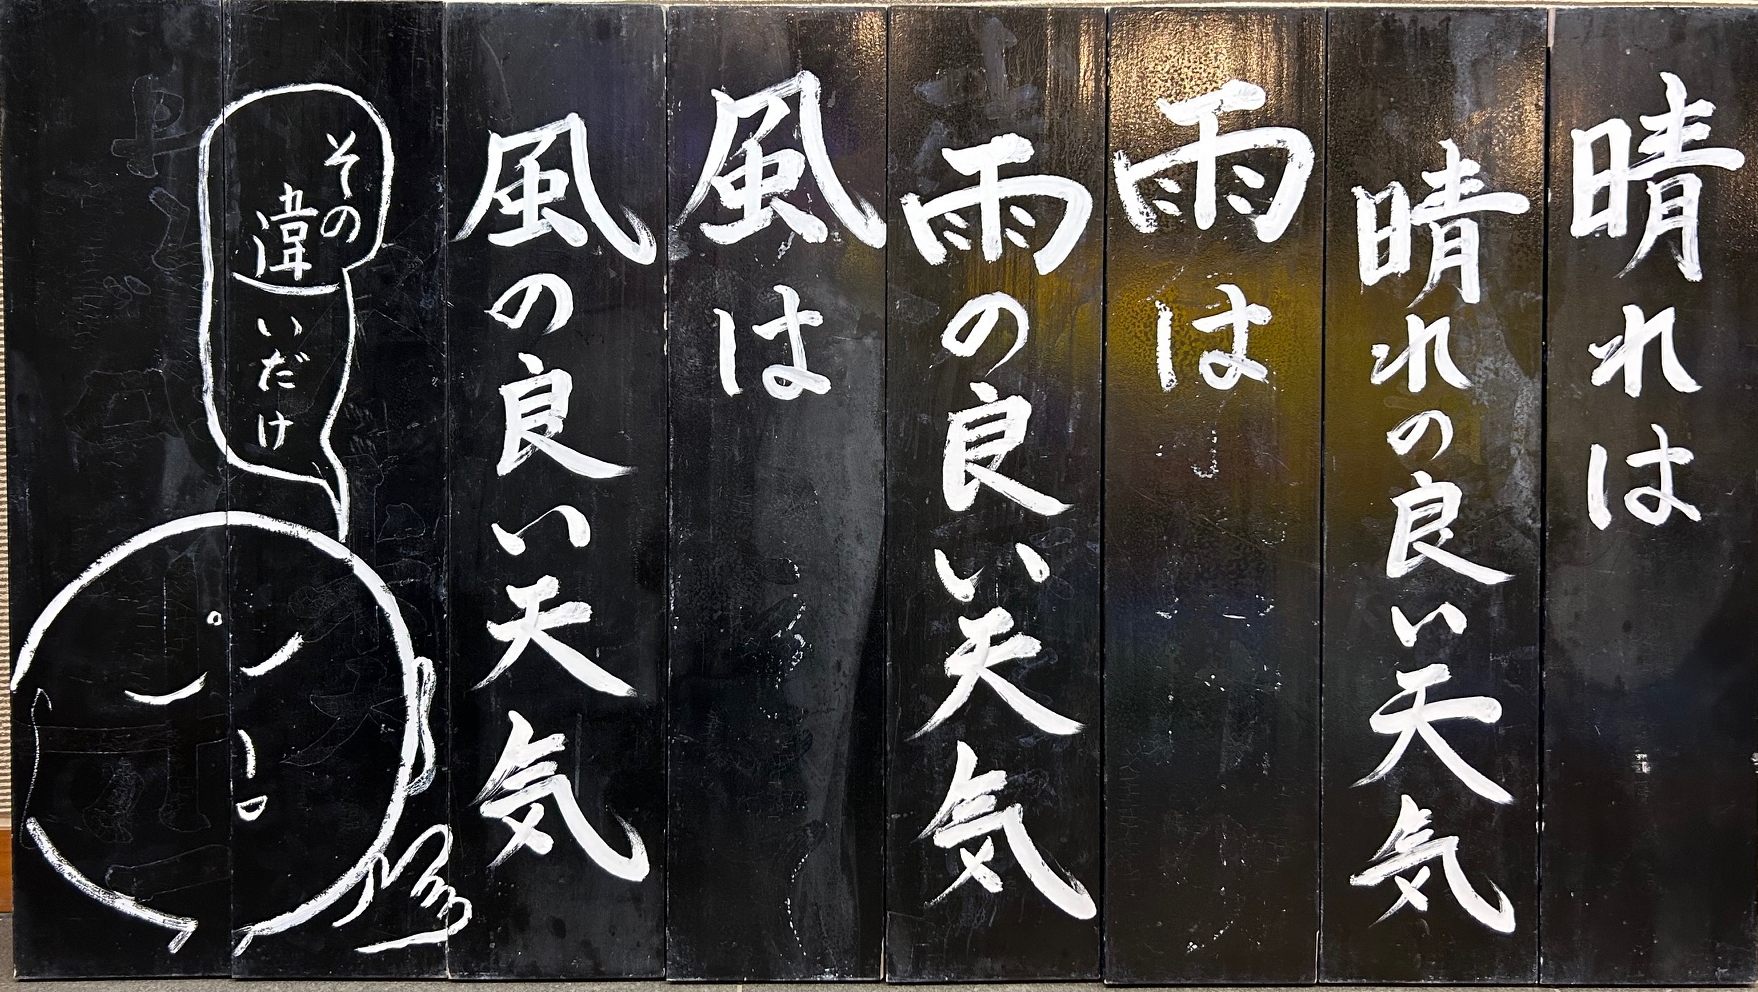 晴れは
晴れの良い天気
雨は
雨の良い天気
風は
風の良い天気
その
違いだけ